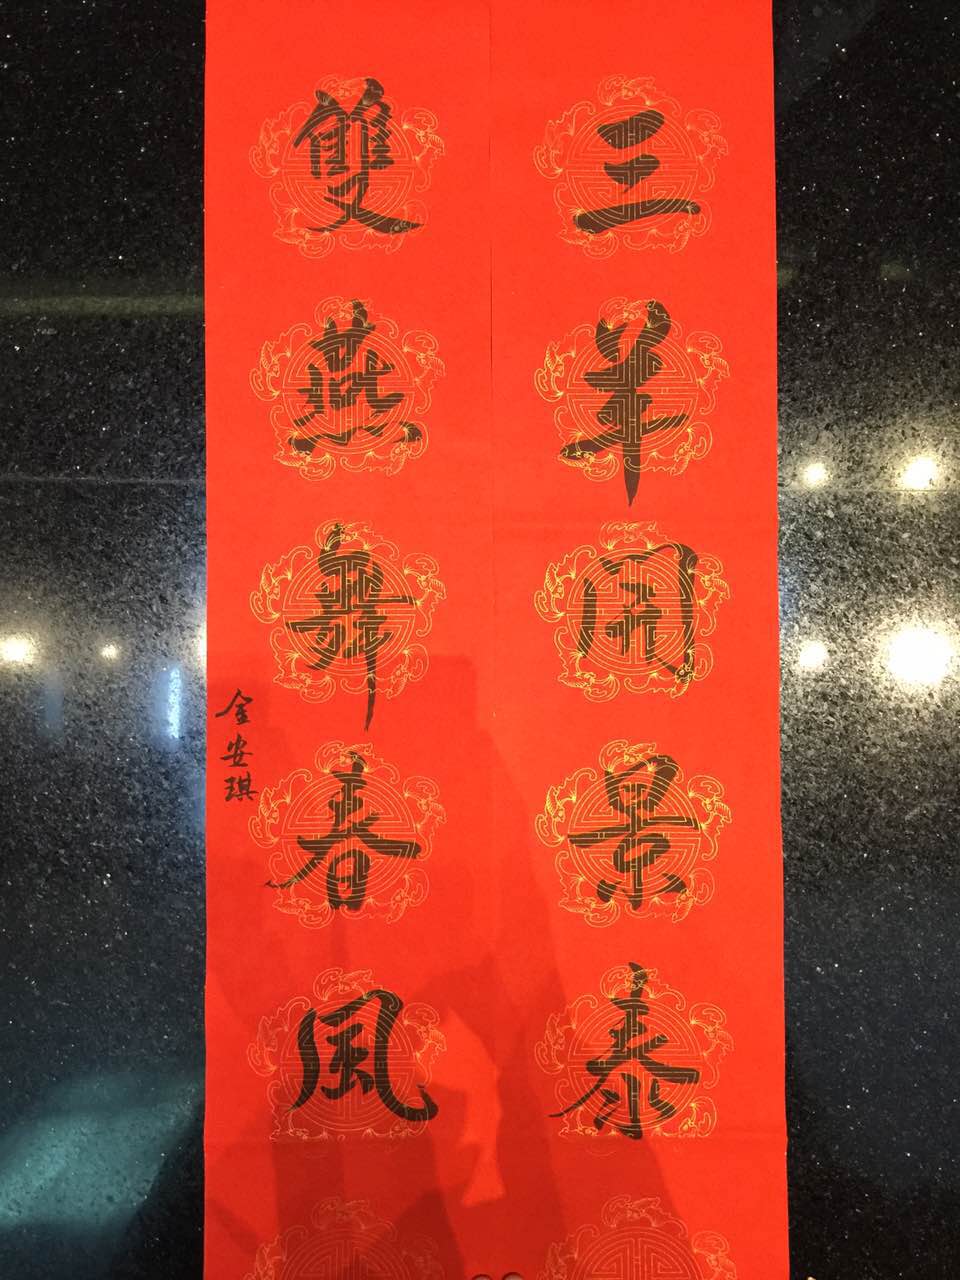 三羊開景泰
雙燕舞春風
金安琪